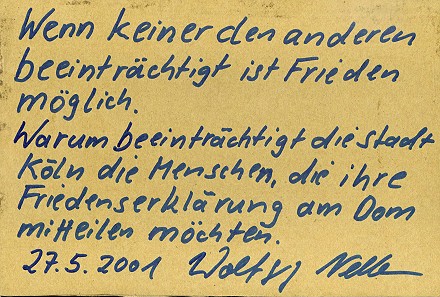 Wenn keiner den anderen
beeinträchtigt ist Frieden
möglich.
Warum beeinträchtigt die Stadt
Köln die Menschen, die ihre
Friedenserklärung am Dom
mitteilen möchten.
27.5.2001